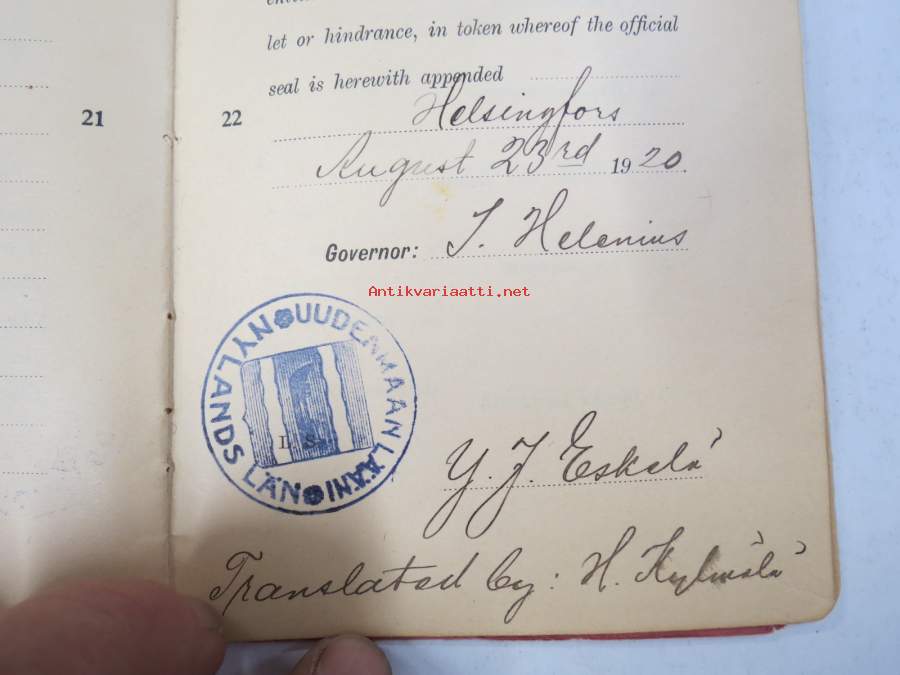 let or hindrance, in token whereof the official
seal is herewith appended
Helsingfors
21
22
August 23rd 1920.
Governor: I. Helenius
Antikvariaatti.net
UUDENMAAN LÄÄNI NYLANDS LÄN
L. S.
Y. J. Eskelä
Translated by: H. Kylmälä